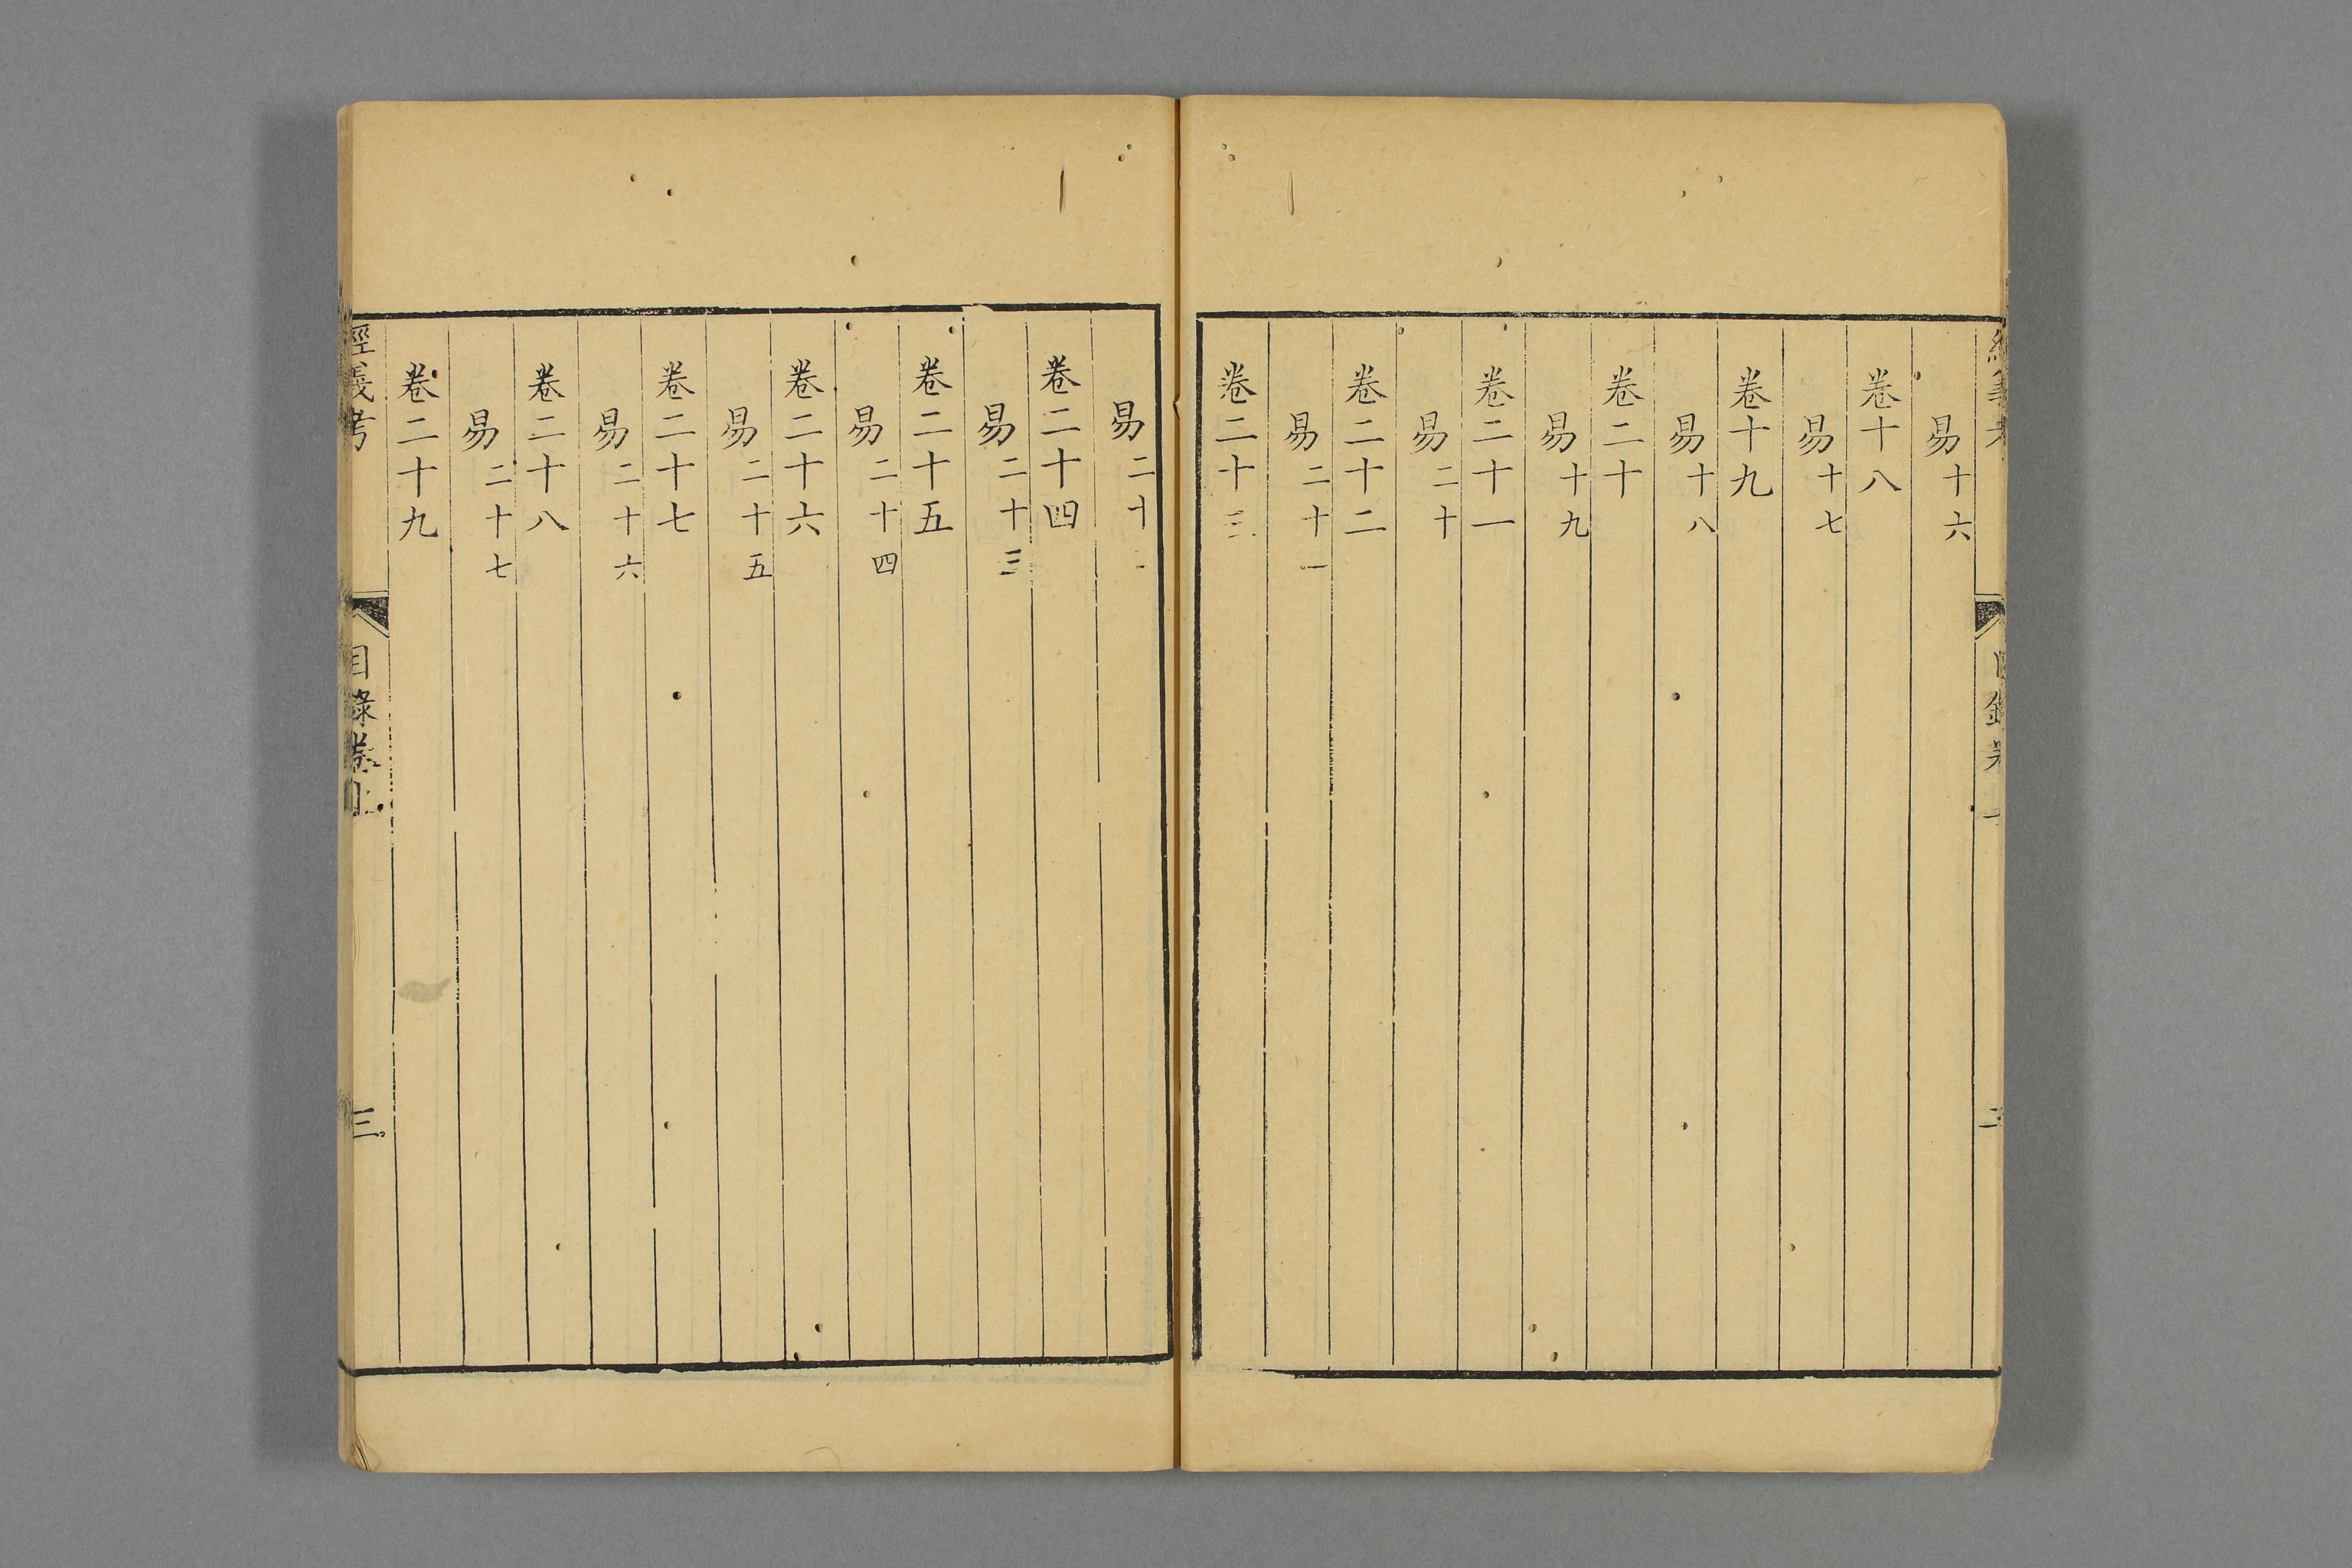 易十六
卷十八
易十七
卷十九
易十八
卷二十
易十九
卷二十一
易二十
卷二十二
易二十一
卷二十三
易二十
卷二十四
易二十三
卷二十五
易二十四
卷二十六
易二十五
卷二十七
易二十六
卷二十八
易二十七
卷二十九
經義考
目錄卷上
三